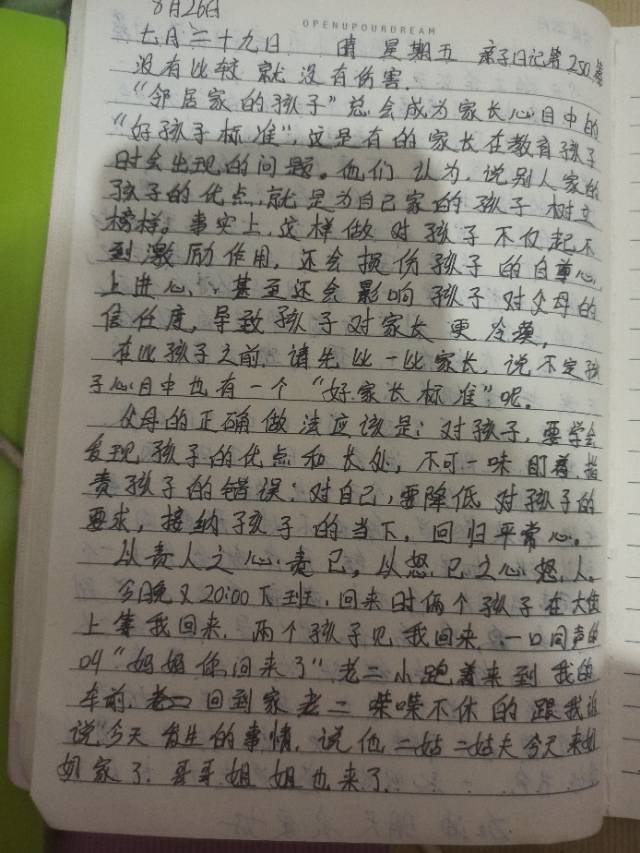 8月26日
OPENUPOURDREAM
七月二十九日 晴 星期五 亲子日记第250篇
没有比较就没有伤害.
“邻居家的孩子”总会成为家长心目中的
“好孩子标准”,这是有的家长在教育孩子
时会出现的问题。他们认为,说别人家的
孩子的优点,就是为自己家的孩子树立
榜样。事实上,这样做对孩子不仅起不
到激励作用,还会损伤孩子的自尊心,
上进心,甚至还会影响孩子对父母的
信任度,导致孩子对家长更冷漠,
在比孩子之前,请先比一比家长,说不定孩
子心目中也有一个“好家长标准”呢。
父母的正确做法应该是:对孩子,要学会
发现孩子的优点和长处,不可一味盯着,指
责孩子的错误;对自己,要降低对孩子的
要求,接纳孩子的当下,回归平常心。
以责人之心责己,以恕己之心恕人。
今晚又20:00下班,回来时俩个孩子在大街
上等我回来,两个孩子见我回来,一口同声的
叫“妈妈你回来了”老二小跑着来到我的
车前,回到家老二喋喋不休的跟我诉
说今天发生的事情,说他二姑二姑夫今天来奶
奶家了,哥哥姐姐也来了.